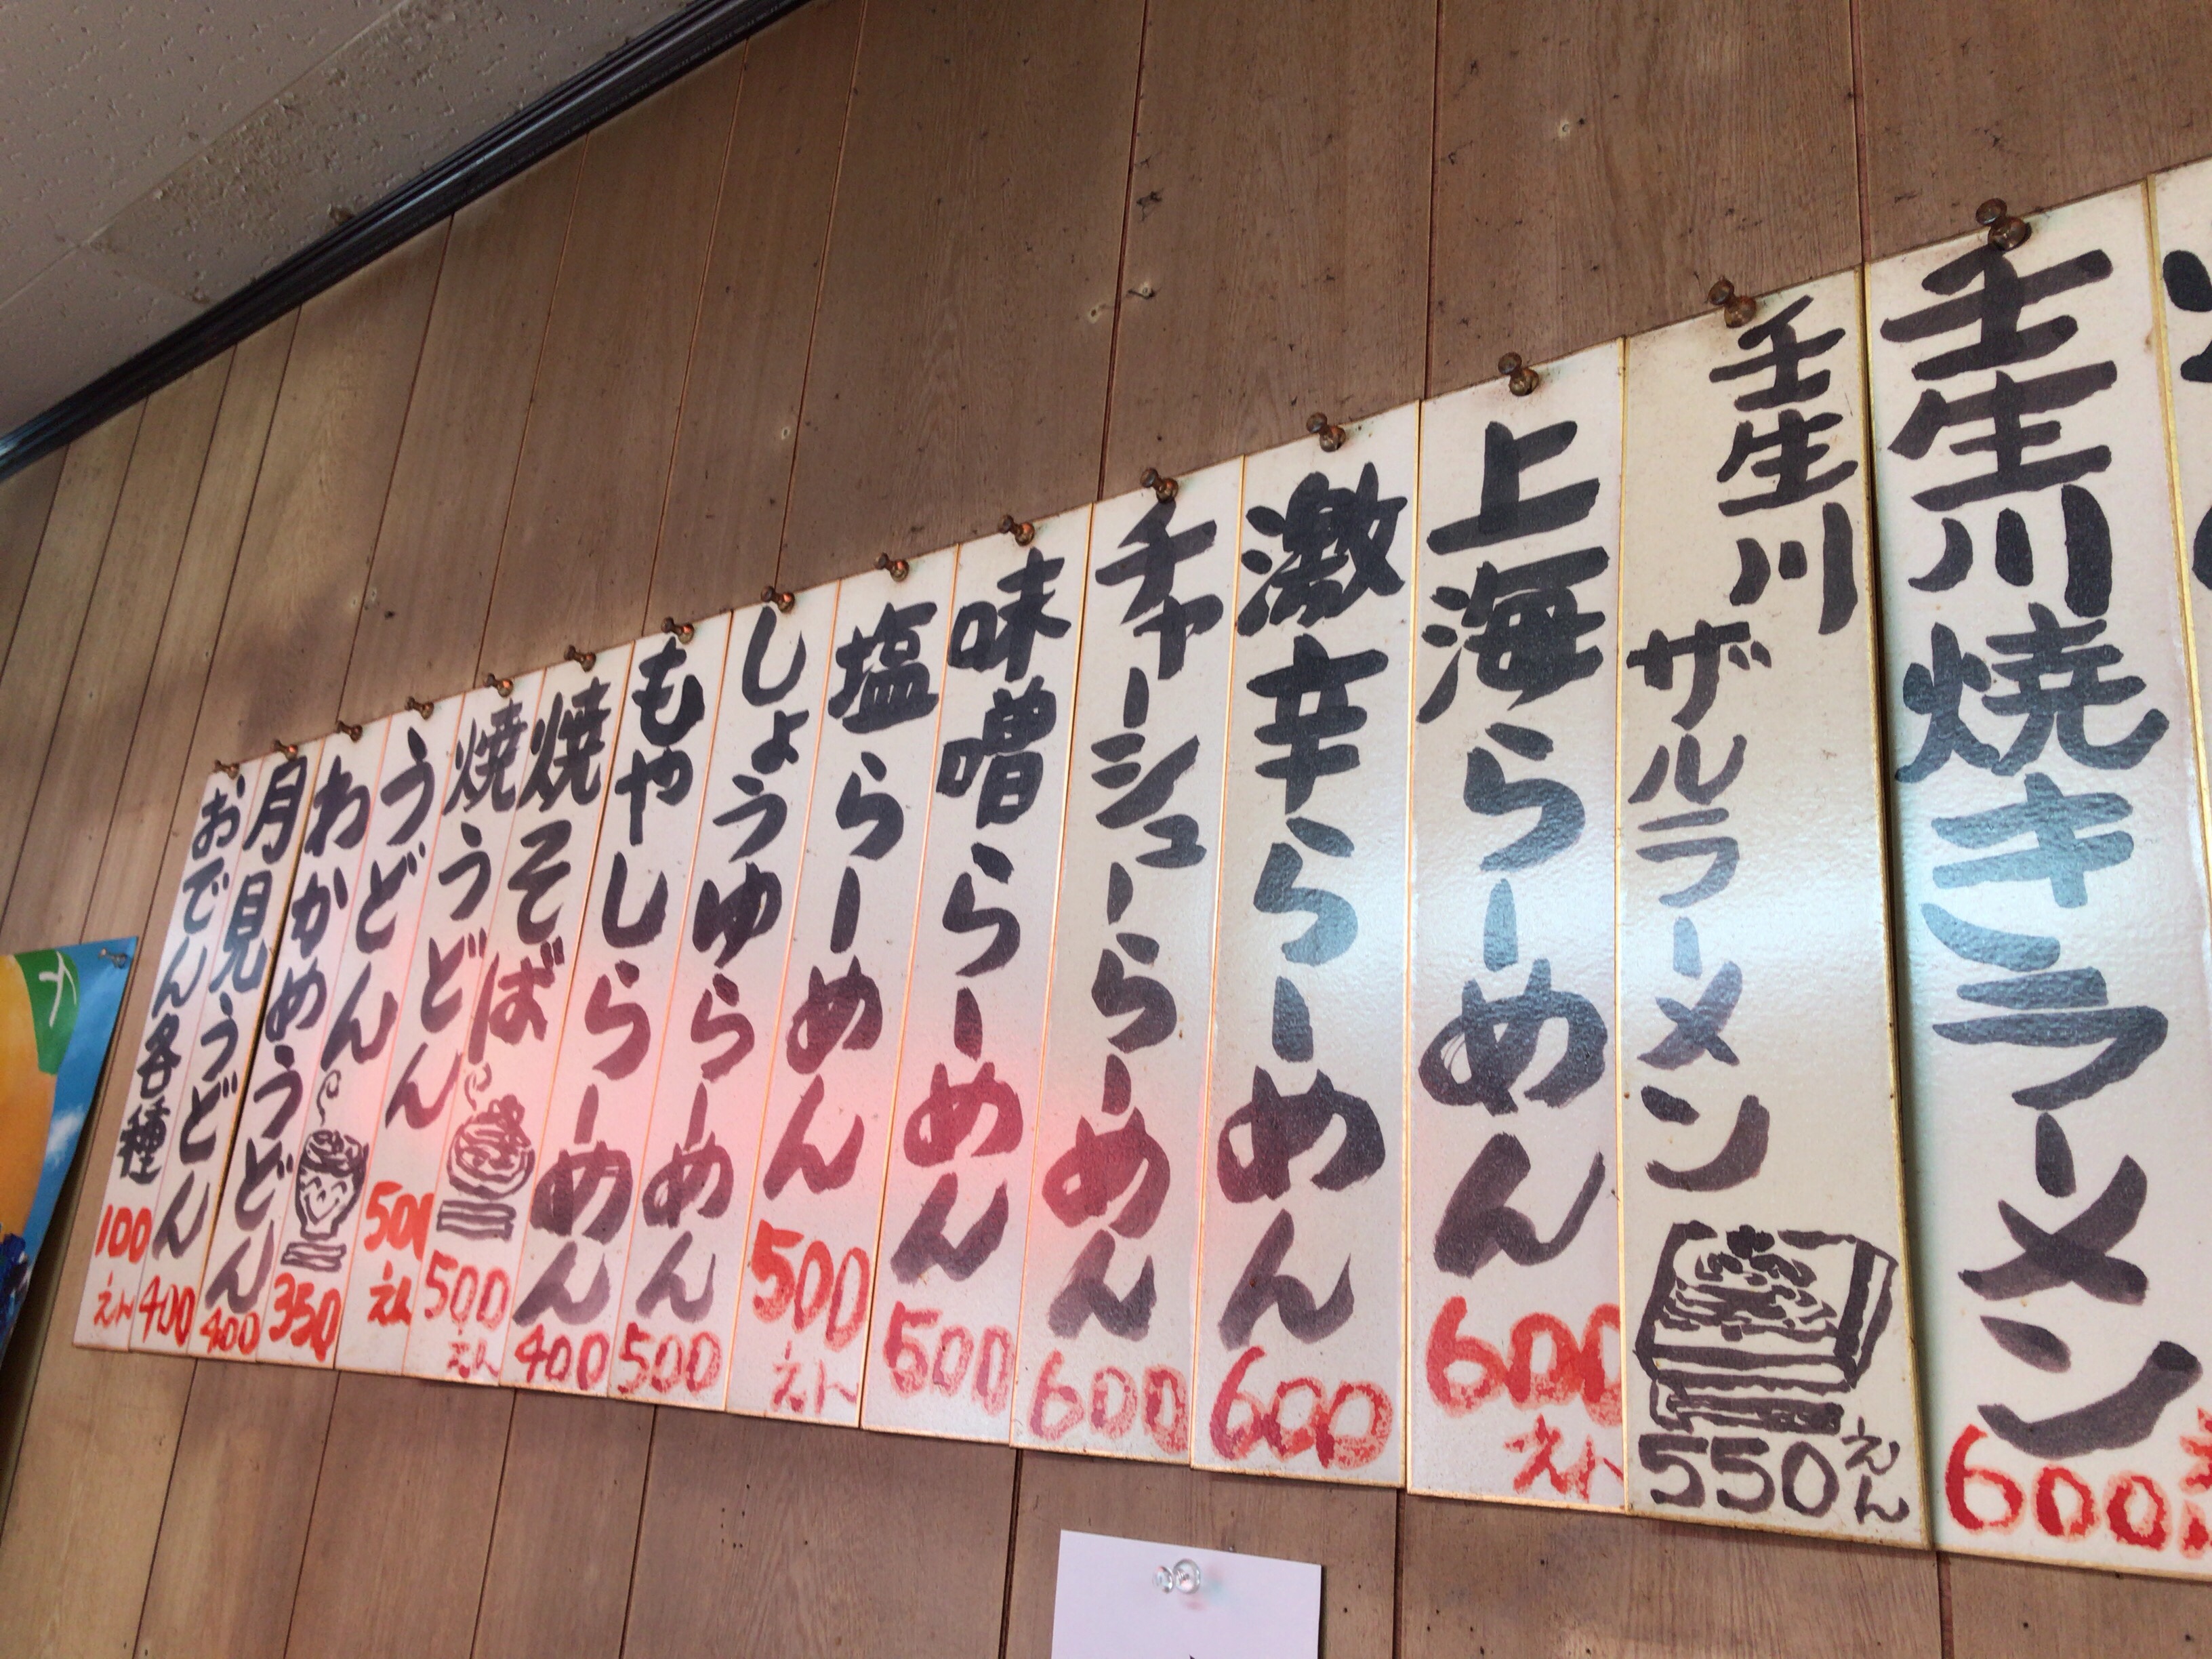 壬生川焼きラーメン
600
壬生川
ザルラーメン
550えん
上海らーめん
600えん
激辛らーめん
600
チャーシューらーめん
600
味噌らーめん
500
塩らーめん
500えん
しょうゆらーめん
500
もやしらーめん
400
焼そば
500えん
焼うどん
500えん
うどん
350
わかめうどん
400
月見うどん
400
おでん各種
100えん